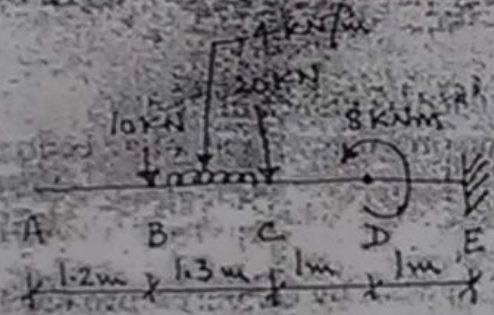 4 kN/m
20KN
10KN
8 KNm
A B C D E
1.2m 1.3m 1m 1m